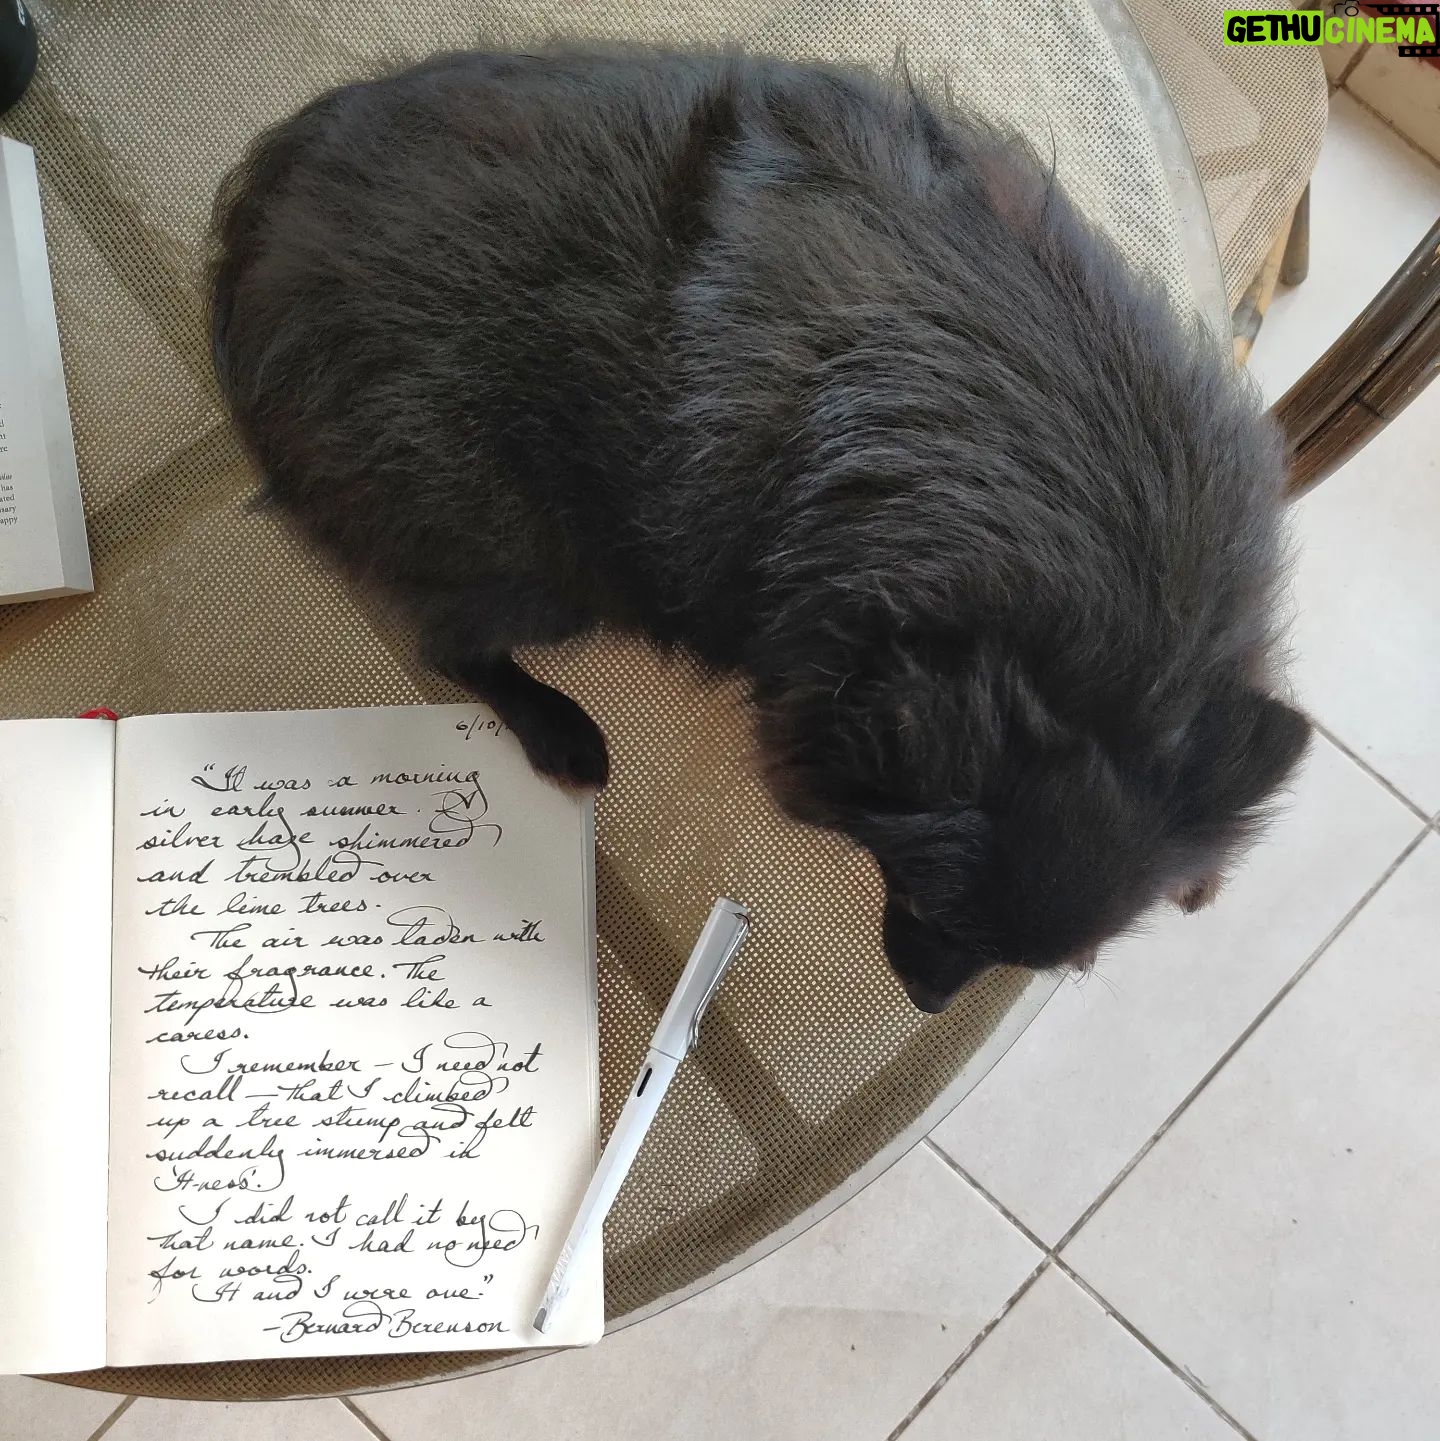 GETHUCINEMA
has
6/10/
"It was a morning
in early summer. A
silver haze shimmered
and trembled over
the lime trees.
The air was laden with
their fragrance. The
temperature was like a
caress.
I remember – I need not
recall – that I climbed
up a tree stump and felt
suddenly immersed in
'It-ness'.
I did not call it by
that name. I had no need
for words.
It and I were one."
– Bernard Berenson